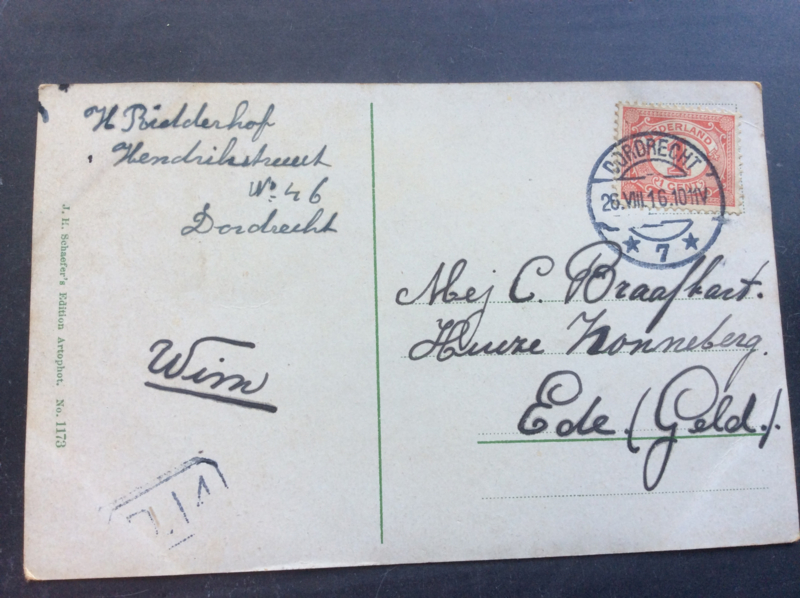 H Ridderhof
Hendrikstraat
No 46
Dordrecht
Wim
J. H. Schaefer's Edition Artophot. No. 1173
NEDERLAND
1 CENT
DORDRECHT
26.VIII.16.10-11V
★ 7 ★
Mej C. Braafhart.
Huize Zonneberg.
Ede. (Geld.).